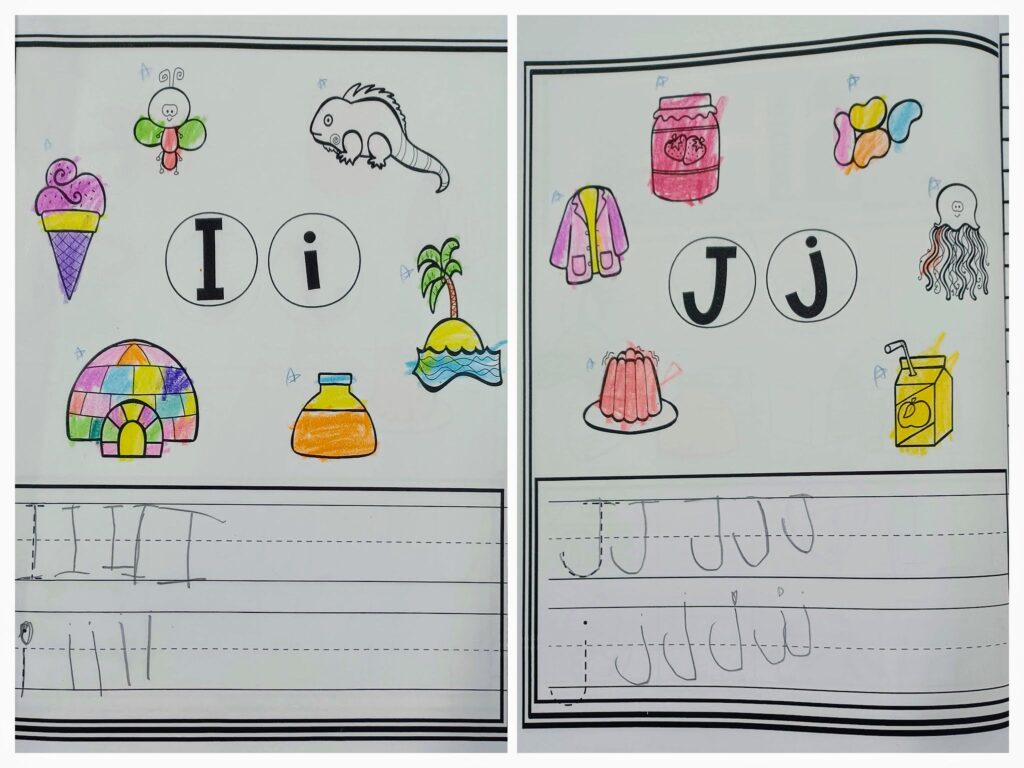 I i
I I I I I
i i i l l
J j
J J J J J
j j j j j j